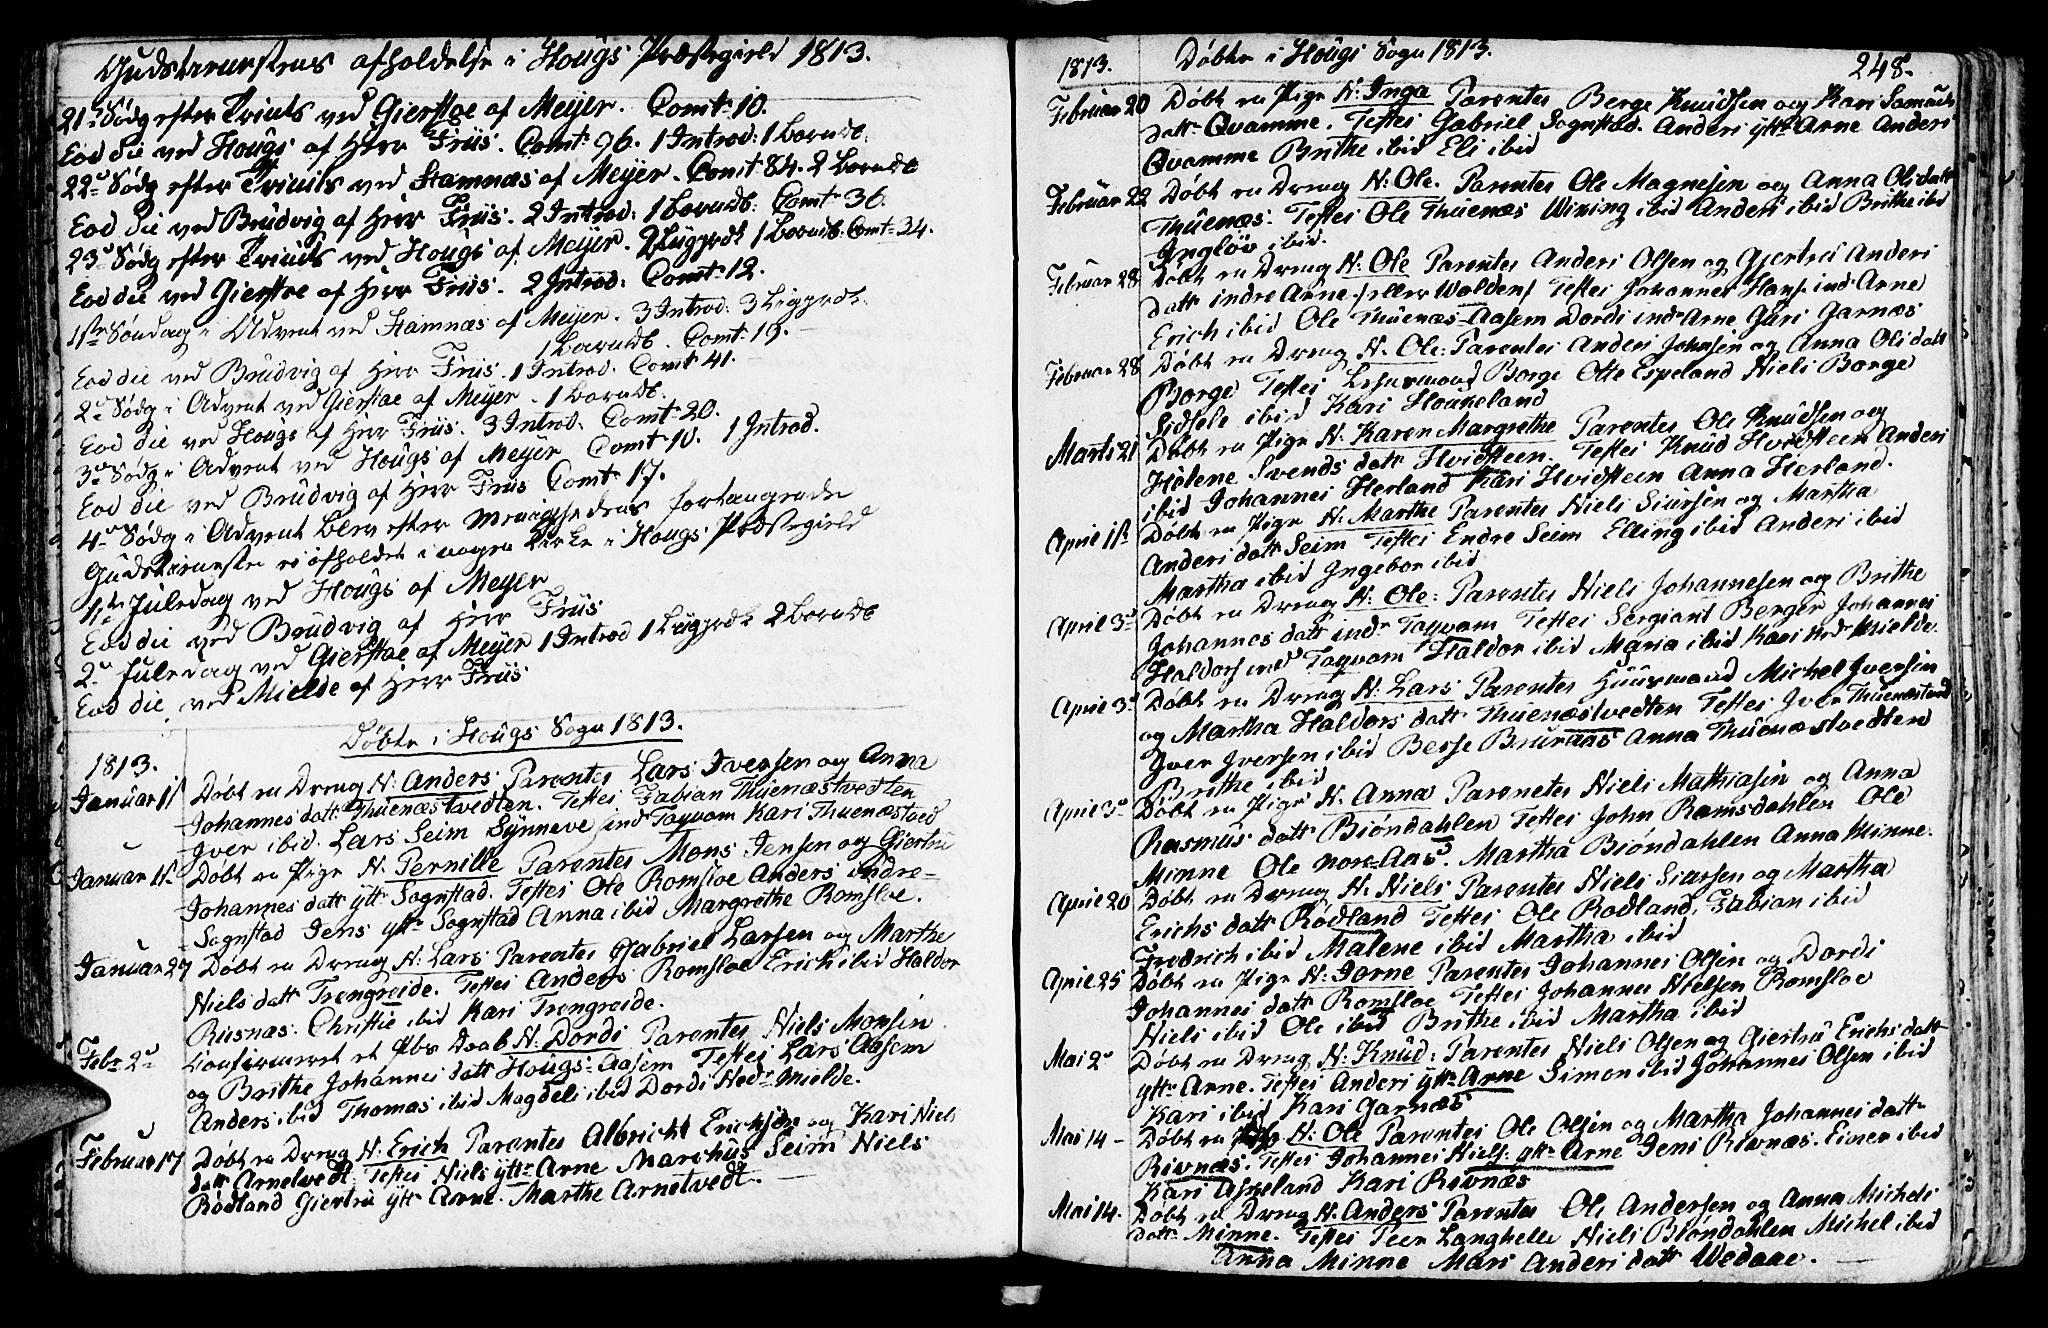 Gudstienestens afholdelse i Hougs Præstegield 1813.
21de Sødg efter Trinits ved Gierstae af Meyer. Comt: 10.
Eod die ved Hougs af Herr Friis. Comt: 96. 1 Introd: 1 Barndb:
22de Sødg efter Trinits ved Hamnæs af Meyer. Comt 84. 2 Barndb
Eod die ved Brudvig af Herr Friis. 2 Introd: 1 Barndb: Comt 36.
23de Sødg efter Trinits ved Hougs af Meyer. 2 Liigprdk 1 Barndb. Comt 34.
Eod die ved Gierstae af Herr Friis. 2 Introd: Comt 12.
1ste Søndag i Advent ved Hamnæs af Meyer. 3 Introd: 3 Ligprdk:
1 Barndb. Comt: 19.
Eod die ved Brudvig af Herr Friis. 1 Introd. Comt 41.
2de Sødg i Advent ved Gierstae af Meyer. 1 Barndb.
Eod die ved Hougs af Herr Friis. 3 Introd. Comt 20.
3de Sødg i Advent ved Hougs af Meyer Comt 10. 1 Introd.
Eod die ved Brudvig af Herr Friis Comt 17.
4de Sødg i Advent blev efter Menighedens forlangende
Gudstieneste ei afholdet i nogen Kirke i Hougs Præstegield
1ste Juledag ved Hougs af Meyer
Eod die ved Brudvig af Herr Friis
2de Juledag ved Gierstae af Meyer 1 Introd 1 Liigprdk 2 Barndb
Eod die ved Mielde af Herr Friis
Døbte i Hougs Sogn 1813.
1813.
Januar 1ste Døbt en Dreng N: Anders Parentes Lars Iversen og Anna
Johannes datt: Thuenæstvedten. Testes Fabian Thuenæstvedten
Iver ibid. Lars Seim Synneve ind Taqvam Kari Thuenæstved
Januar 1st Døbt en Pige N. Pernille Parentes Mons Jensen og Giertru
Johannes datt ytt: Sognstad. Testes Ole Romsloe Anders indre
Sognstad Jens ytt: Sognstad Anna ibid Margrethe Romsloe.
Januar 27 Døbt en Dreng N: Lars Parentes Gabriel Larsen og Marthe
Niels datt Trengreide. Testes Anders Romsloe Erich ibid Haldor
Rusnæs. Christie ibid Kari Trengreide.
Febr: 2de Confirmeret et Pbr Daab N: Dordi Parentes Niels Monsen
og Brithe Johannes datt Hougs-Aasem Testes Lars Aasem
Anders ibid Thomas ibid Magdeli ibid Dordi Nedr: Mielde.
Februar 17 Døbt en Dreng N: Erich Parentes Albricht Ericksen og Kari Niels
datt Arnetvedt: Testes Niels ytt: Arne Marchus Seim Niels
Rødland Giertru ytt Arne. Marthe Arnetvedt.
1813. Døbte i Hougs Sogn 1813. 248.
Februar 20 Døbt en Pige N: Inga Parentes Berge Knudsen og Kari Samuels
datt: Qvamme. Testes Gabriel Sognstad. Anders ytt: Arne Anders
Qvamme Brithe ibid Eli ibid
Februar 22 Døbt en Dreng N: Ole. Parentes Ole Magnesen og Anna Ols datt
Thuenæs. Testes Ole Thuenæs Wiking ibid Anders ibid Brithe ibid
Ingløv ibid.
Februar 28 Døbt en Dreng N: Ole Parentes Anders Olsen og Giertru Anders
datt indre Arne /:eller Walden/ Testes Johannes Hans: ind Arne
Erich ibid Ole Thuenæs-Aasem Dordi ind: Arne Guri Garnæs
Februar 28 Døbt en Dreng N. Ole: Parentes Anders Johnsen og Anna Ols datt
Borge Testes Lehnsmand Borge Olle Espeland Niels Borge
Sidsele ibid Kari Houkeland
Marts 21 Døbt en Pige N: Karen Margrethe Parentes Ole Knudsen og
Helene Svends datt Hvidsteen. Testes Knud Hvidsteen Anders
ibid Johannes Herland Kari Hvidsteen Anna Herland.
April 1st Døbt en Pige N: Marthe Parentes Niels Siursen og Martha
Anders datt Seim Testes Endre Seim Elling ibid Anders ibid
Martha ibid Ingebor ibid
April 3de Døbt en Dreng N: Ole: Parentes Niels Johannesen og Brithe
Johannes datt ind: Taqvam Testes Sergiant Berger Johannes
Haldors: ind Taqvam Haldor ibid Maria ibid Kari Nedr Mielde.
April 3de Døbt en Dreng N: Lars Parentes Huusmand Michel Iversen
og Martha Haldors datt Thuenæstvedten Testes Iver Thuenæstvedt
Iver Iversen ibid Berse Bruraas Anna Thuenæstvedten
Brithe ibid
April 3de Døbt en Pige N: Anna Parenetes Niels Mathiasen og Anna
Rasmus datt Biøndahlen Testes John Ramsdahlen Ole
Minne Ole Nore-Aas. Martha Biøndahlen Anna Minne.
April 20 Døbt en Dreng N: Niels Parentes Niels Siursen og Martha
Erichs datt Rødland Testes Ole Rødland, Fabian ibid
Fredrich ibid Malene ibid Martha ibid
April 25 Døbt en Pige N: Jorne Parentes Johannes Olsen og Dordi
Johannes datt Romsloe Testes Johannes Nielsen Romsloe
Niels ibid Ole ibid Brithe ibid Martha ibid
Mai 2de Døbt en Dreng N: Knud: Parentes Niels Olsen og Giertru Erichs datt
ytt: Arne. Testes Anders ytt: Arne Simon ibid Johannes Olsen ibid
Kari ibid Kari Garnæs
Mai 14 – Døbt en N: Ole Parentes Ole Olsen og Martha Johannes datt
Rivnæs. Testes Johannes Niels: ytt: Arne Jens Rivnæs. Einer ibid
Kari Askeland Kari Rivnæs
Mai 14. Døbt en Dreng N: Anders Parentes Ole Andersen og Anna Michels
datt: Minne. Testes Peer Langhelle Niels Biøndahlen Michel ibid
Anna Minne Mari Anders datt Wedaae.